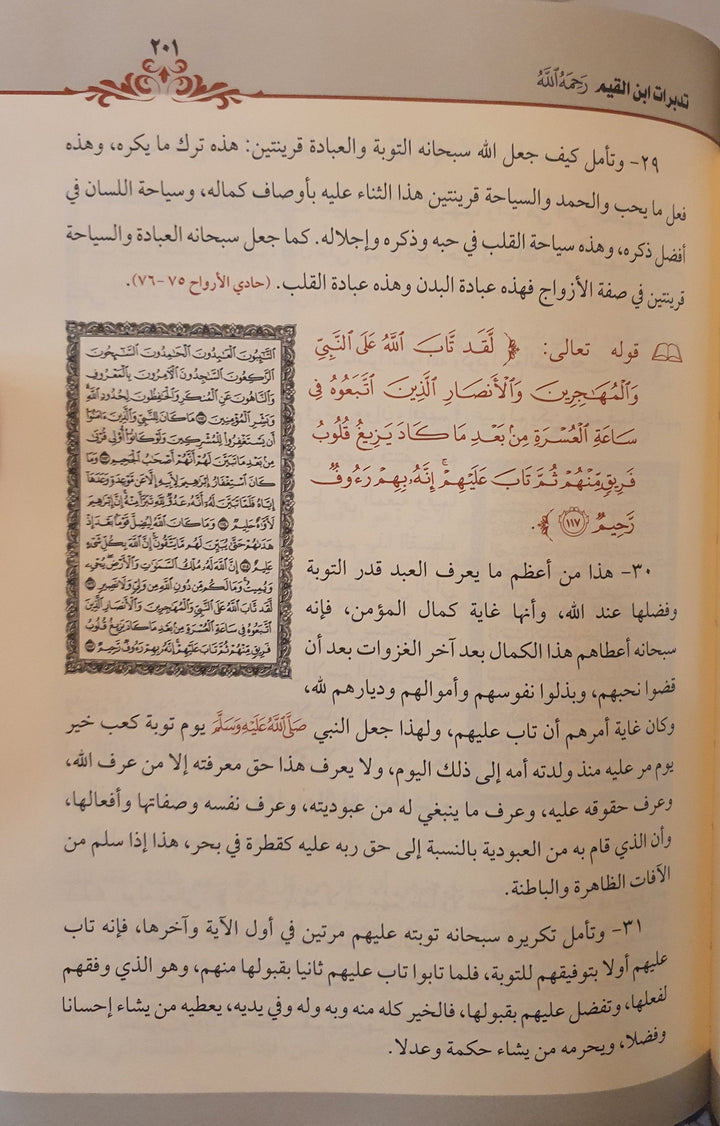 ٢٠١
تدبرات ابن القيم رَحِمَهُ ٱللَّهُ
٢٩- وتأمل كيف جعل الله سبحانه التوبة والعبادة قرينتين: هذه ترك ما يكره، وهذه
فعل ما يحب والحمد والسياحة قرينتين هذا الثناء عليه بأوصاف كماله، وسياحة اللسان في
أفضل ذكره، وهذه سياحة القلب في حبه وذكره وإجلاله. كما جعل سبحانه العبادة والسياحة
قرينتين في صفة الأزواج فهذه عبادة البدن وهذه عبادة القلب. (حادي الأرواح ٧٥-٧٦).
قوله تعالى: ﴿ لَّقَد تَّابَ ٱللَّهُ عَلَى ٱلنَّبِيِّ
وَٱلْمُهَٰجِرِينَ وَٱلْأَنصَارِ ٱلَّذِينَ ٱتَّبَعُوهُ فِي
سَاعَةِ ٱلْعُسْرَةِ مِنۢ بَعْدِ مَا كَادَ يَزِيغُ قُلُوبُ
فَرِيقٍ مِّنْهُمْ ثُمَّ تَابَ عَلَيْهِمْ ۚ إِنَّهُۥ بِهِمْ رَءُوفٌ
رَّحِيمٌ ١١٧ ﴾.
ٱلتَّٰٓئِبُونَ ٱلْعَٰبِدُونَ ٱلْحَٰمِدُونَ ٱلسَّٰٓئِحُونَ
ٱلرَّٰكِعُونَ ٱلسَّٰجِدُونَ ٱلْءَامِرُونَ بِٱلْمَعْرُوفِ
وَٱلنَّاهُونَ عَنِ ٱلْمُنكَرِ وَٱلْحَٰفِظُونَ لِحُدُودِ ٱللَّهِ
وَبَشِّرِ ٱلْمُؤْمِنِينَ ١١٢ مَا كَانَ لِلنَّبِيِّ وَٱلَّذِينَ ءَامَنُوٓا۟
أَن يَسْتَغْفِرُوا۟ لِلْمُشْرِكِينَ وَلَوْ كَانُوٓا۟ أُو۟لِي قُرْبَىٰ
مِنۢ بَعْدِ مَا تَبَيَّنَ لَهُمْ أَنَّهُمْ أَصْحَٰبُ ٱلْجَحِيمِ ١١٣ وَمَا
كَانَ ٱسْتِغْفَارُ إِبْرَٰهِيمَ لِأَبِيهِ إِلَّا عَن مَّوْعِدَةٍ وَعَدَهَآ
إِيَّاهُ فَلَمَّا تَبَيَّنَ لَهُۥٓ أَنَّهُۥ عَدُوٌّ لِّلَّهِ تَبَرَّأَ مِنْهُ ۚ إِنَّ إِبْرَٰهِيمَ
لَأَوَّٰهٌ حَلِيمٌ ١١٤ وَمَا كَانَ ٱللَّهُ لِيُضِلَّ قَوْمًۢا بَعْدَ إِذْ
هَدَىٰهُمْ حَتَّىٰ يُبَيِّنَ لَهُم مَّا يَتَّقُونَ ۚ إِنَّ ٱللَّهَ بِكُلِّ شَيْءٍ
عَلِيمٌ ١١٥ إِنَّ ٱللَّهَ لَهُۥ مُلْكُ ٱلسَّمَٰوَٰتِ وَٱلْأَرْضِ ۖ يُحْيِۦ
وَيُمِيتُ ۚ وَمَا لَكُم مِّن دُونِ ٱللَّهِ مِن وَلِيٍّ وَلَا نَصِيرٍ ١١٦
لَّقَد تَّابَ ٱللَّهُ عَلَى ٱلنَّبِيِّ وَٱلْمُهَٰجِرِينَ وَٱلْأَنصَارِ ٱلَّذِينَ
ٱتَّبَعُوهُ فِي سَاعَةِ ٱلْعُسْرَةِ مِنۢ بَعْدِ مَا كَادَ يَزِيغُ قُلُوبُ
فَرِيقٍ مِّنْهُمْ ثُمَّ تَابَ عَلَيْهِمْ ۚ إِنَّهُۥ بِهِمْ رَءُوفٌ رَّحِيمٌ ١١٧
٣٠- هذا من أعظم ما يعرف العبد قدر التوبة
وفضلها عند الله، وأنها غاية كمال المؤمن، فإنه
سبحانه أعطاهم هذا الكمال بعد آخر الغزوات بعد أن
قضوا نحبهم، وبذلوا نفوسهم وأموالهم وديارهم لله،
وكان غاية أمرهم أن تاب عليهم، ولهذا جعل النبي صَلَّى ٱللَّهُ عَلَيْهِ وَسَلَّمَ يوم توبة كعب خير
يوم مر عليه منذ ولدته أمه إلى ذلك اليوم، ولا يعرف هذا حق معرفته إلا من عرف الله،
وعرف حقوقه عليه، وعرف ما ينبغي له من عبوديته، وعرف نفسه وصفاتها وأفعالها،
وأن الذي قام به من العبودية بالنسبة إلى حق ربه عليه كقطرة في بحر، هذا إذا سلم من
الآفات الظاهرة والباطنة.
٣١- وتأمل تكريره سبحانه توبته عليهم مرتين في أول الآية وآخرها، فإنه تاب
عليهم أولا بتوفيقهم للتوبة، فلما تابوا تاب عليهم ثانيا بقبولها منهم، وهو الذي وفقهم
لفعلها، وتفضل عليهم بقبولها، فالخير كله منه وبه وله وفي يديه، يعطيه من يشاء إحسانا
وفضلا، ويحرمه من يشاء حكمة وعدلا.